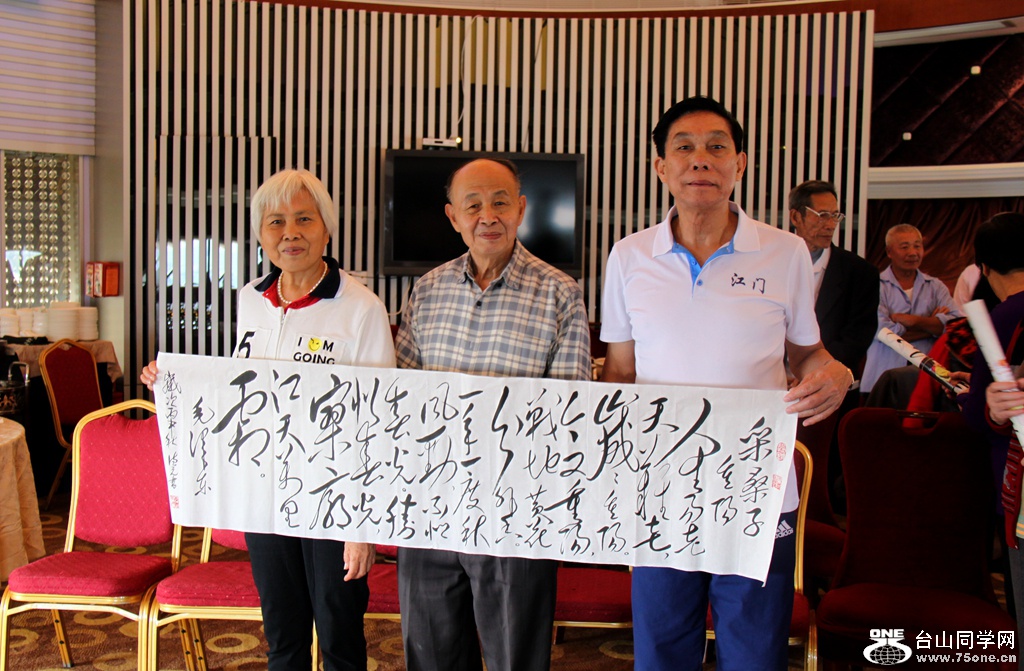 采桑子
重陽
人生易老
天難老,
歲歲重陽。
今又重陽,
戰地黄花
分外香。
一年一度秋
风劲,不似
春光。勝
似春光,
寥廓
江天萬里
霜。
毛澤东
江门
5
I M
GOING
ONE
台山同学网
www.75one.cn